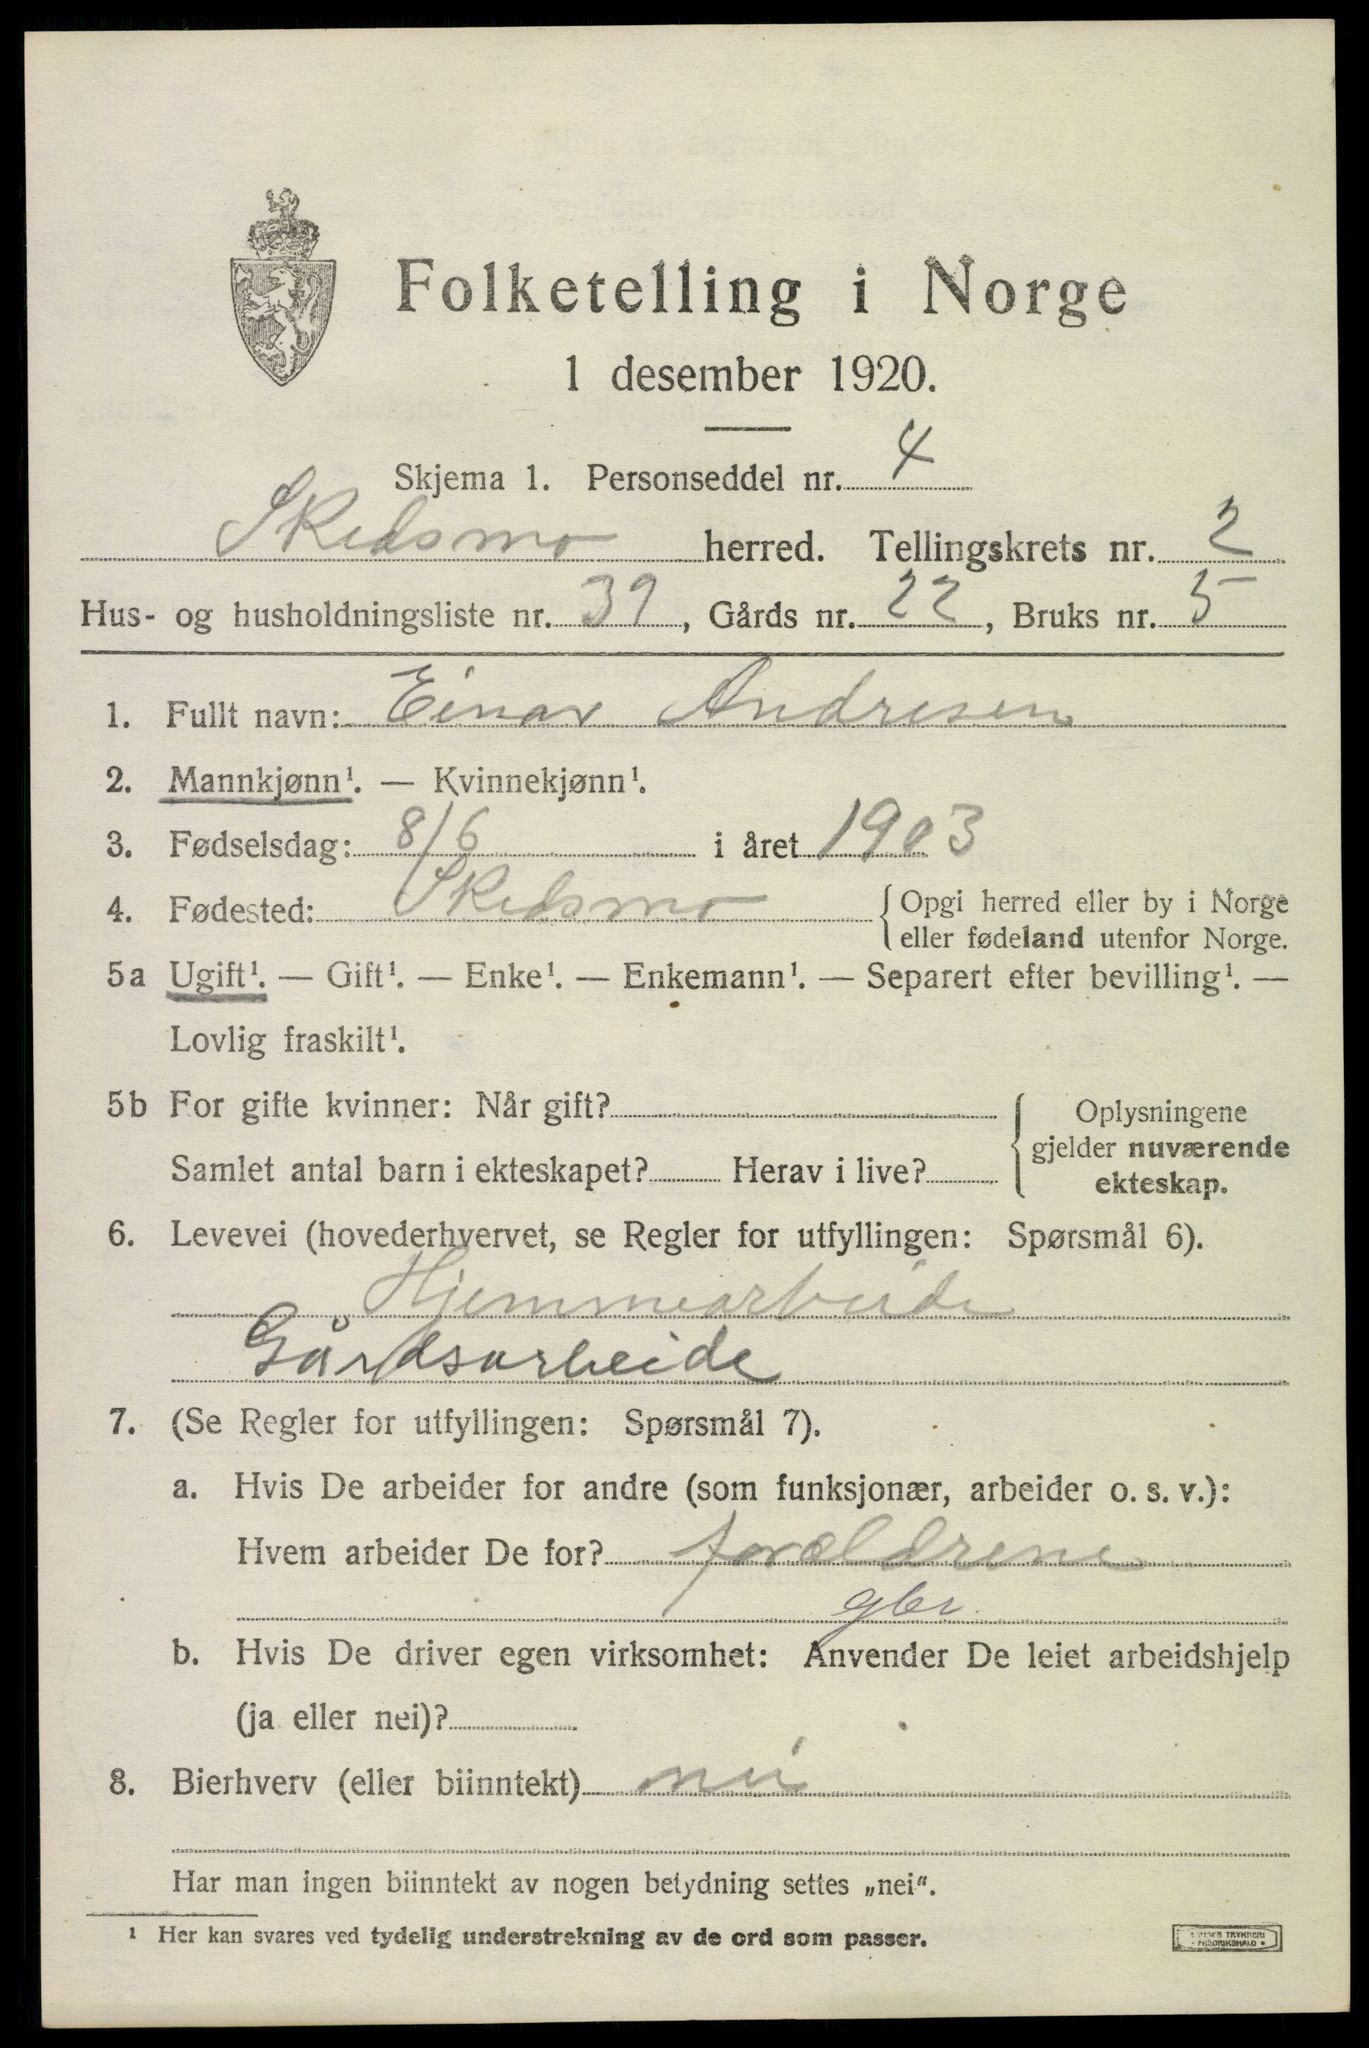 Folketelling i Norge
1 desember 1920.
Skjema 1. Personseddel nr. 4
Skedsmo herred. Tellingskrets nr. 2
Hus- og husholdningsliste nr. 39, Gårds nr. 22, Bruks nr. 5
1. Fullt navn: Einar Andresen
2. Mannkjønn¹. — Kvinnekjønn¹.
3. Fødselsdag: 8/6 i året 1903
4. Fødested: Skedsmo { Opgi herred eller by i Norge
eller fødeland utenfor Norge.
5a Ugift¹. — Gift¹. — Enke¹. — Enkemann¹. — Separert efter bevilling¹. —
Lovlig fraskilt¹.
5b For gifte kvinner: Når gift? { Oplysningene
gjelder nuværende
Samlet antal barn i ekteskapet? Herav i live?
ekteskap.
6. Levevei (hovederhvervet, se Regler for utfyllingen: Spørsmål 6).
Hjemmearbeide
Gårdsarbeide
7. (Se Regler for utfyllingen: Spørsmål 7).
a. Hvis De arbeider for andre (som funksjonær, arbeider o. s. v.):
Hvem arbeider De for? forældrene
gbr.
b. Hvis De driver egen virksomhet: Anvender De leiet arbeidshjelp
(ja eller nei)?
8. Bierhverv (eller biinntekt) nei
Har man ingen biinntekt av nogen betydning settes „nei“.
¹ Her kan svares ved tydelig understrekning av de ord som passer.
TRYKKERI
FREDRIKSHALD